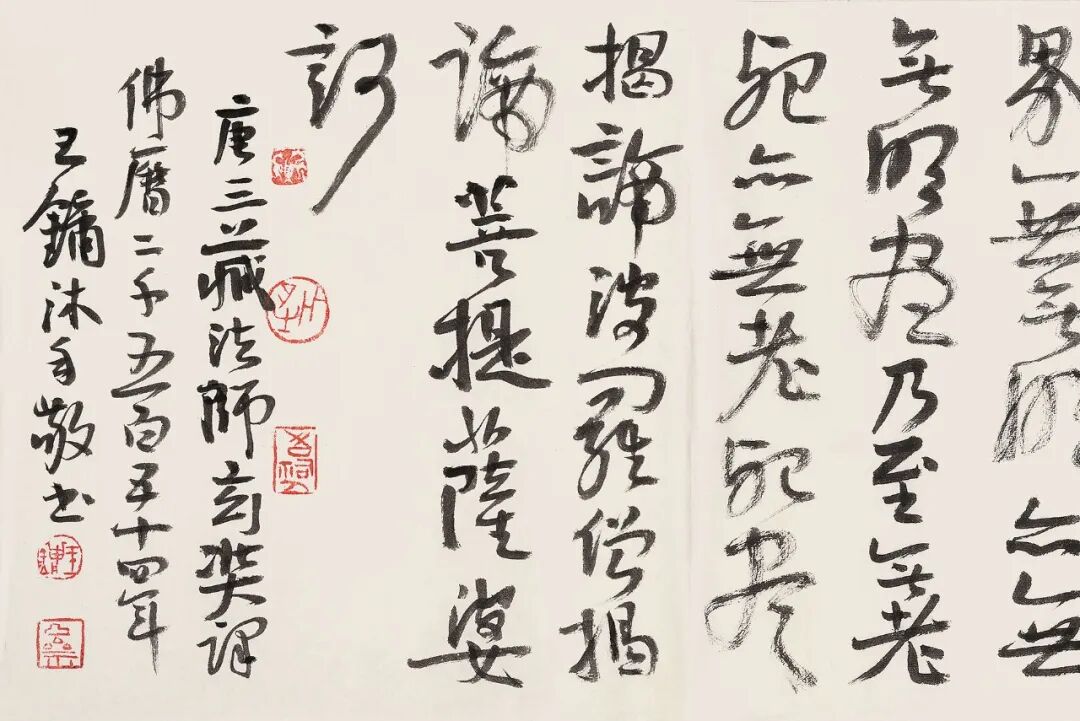 界無無明亦無
無明盡乃至無老
死亦無老死盡
揭諦波羅僧揭
諦菩提薩婆
訶
唐三藏法師玄奘譯
佛曆二千五百五十四年
王鏞沐手敬書